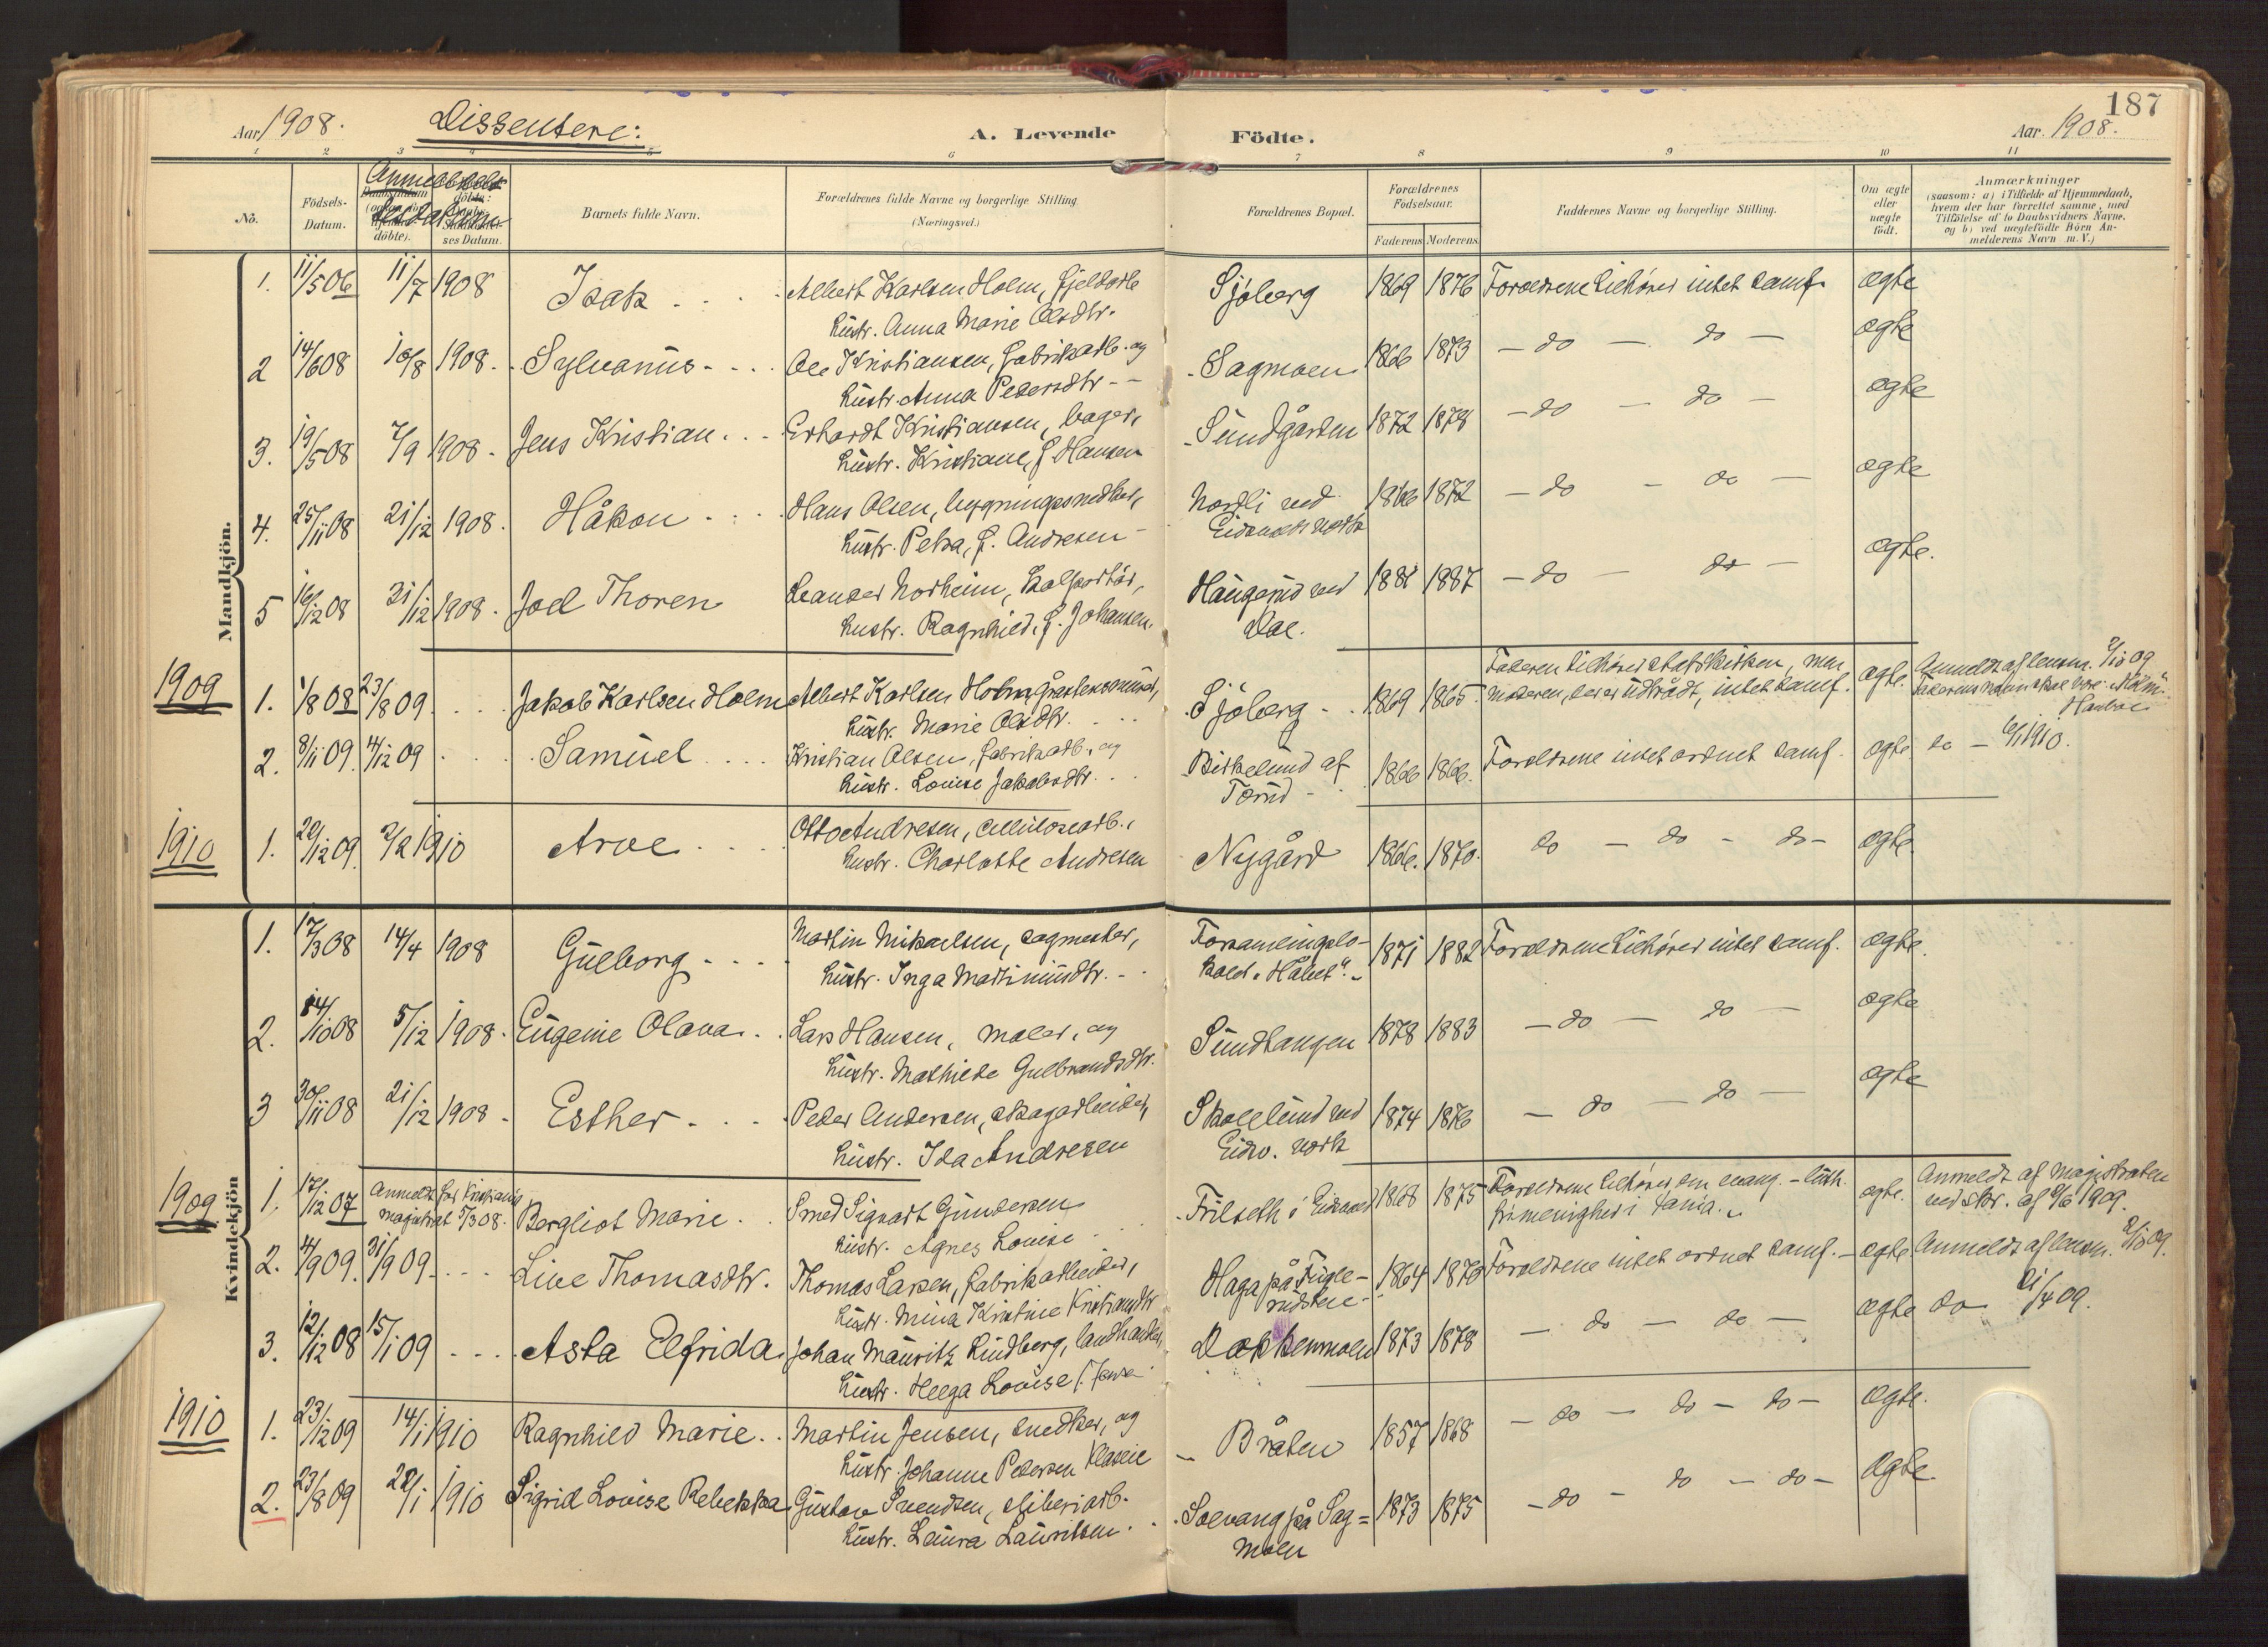 187
Aar 1908. Dissentere: A. Levende Födte. Aar 1908.
1 2 3 4 5 6 7 8 9 10 11
No. Födsels-Datum. Anmeldelsesdatum Barnets fulde Navn. Forældrenes fulde Navne og borgerlige Stilling (Næringsvei.) Forældrenes Bopæl. Forældrenes Födselsaar. Faderens Moderens Faddernes Navne og borgerlige Stilling. Om ægte eller uægte födt. Anmærkninger
(saasom: a) i Tilfælde af Hjemmedaab,
hvem der har forrettet samme, med
Tilföielse af to Daabsvidners Navne.
og b) ved uægtefödte Börn An-
melderens Navn m. V.)
Mandkjön.
1. 11/5 06 11/7 1908 Isak Albert Karlsen Holm, fjeldarb Sjøberg 1869 1876 Forældrene tilhører intet samf. ægte
hustr. Anna Marie Olsdtr.
2 14/6 08 10/8 1908. Sylvanus Ole Kristiansen, fabrikarb. og Sagmoen 1866 1873 - do - do - ægte
hustr. Anna Pedersdtr
3. 19/5 08 7/9 1908. Jens Kristian Erhardt Kristiansen, bager, Sundgården 1872 1878 - do - do - ægte
hustr. Kristiane, f. Hansen
4. 25/11 08 21/12 1908. Håkon Hans Olsen, bygningssnedker, Nordli ved 1866 1872 - do - do - ægte
hustr. Petra, f. Andresen Eidsvolds værk
5 16/12 08 31/12 1908. Joel Thoren Leander Norheim, kolportør, Haugerud ved 1881 1887 - do - do - ægte.
hustr. Ragnhild, f. Johansen. Dal.
1909 1. 1/8 08 23/8 09. Jakob Karlsen Holm Albert Karlsen Holm, gråstensmurer, Sjöberg 1869 1865 Faderen tilhører statskirken, men ægte. Anmeldt af lensm. 2/10 09
hustr. Marie Olsdtr. moderen, der er udtrådt, intet samf.
2. 8/11 09. 4/12 09 Samuel Kristian Olsen, fabrikarb., og Birkelund af 1866 1866. Forældrene intet ordnet samf. ægte do - 6/1 1910.
hustr. Louise Jakobsdtr. Tærud
1910 1. 22/12 09. 2/2 1910 Arve Otto Andresen, cellulosearb., Nygård 1866. 1870. do - do - do - ægte.
hustr. Charlotte Andresen
Kvindekjön
1. 17/3 08 14/4 1908 Gulborg Martin Mikaelsen, sagmester, Forsamlingslo- 1871 1882 Forældrene tilhører intet samf. ægte.
hustr. Inga Martiniusdtr. kalet "Håbet".
2. 14/10 08 5/12 1908. Eugenie Olava Lars Hansen, maler, og Sundtangen 1878 1883 - do - do - ægte
hustr. Mathilde Gulbrandsdtr.
3 30/11 08 21/12 1908. Esther Peder Andersen, skogarbeider, Skollelund ved 1874 1876 - do - do - ægte
hustr. Ida Andresen Eidsv. værk
1909 1. 17/12 07 Anmeldt for Kristiania Bergliot Marie Smed Sigvart Gundersen Frilseth i Eidsvold 1868 1875 Forældrene tilhører den evang.-luth. ægte. Anmeldt af magistraten
magistrat 5/3 08. hustr. Agnes Louise frimenighed i Xania. ved skr. af 9/6 1909.
2. 4/9 09. 31/9 09. Live Thomasdtr. Thomas Larsen, fabrikarbeider, Haga på Fugle- 1864 1870 Forældrene intet ordnet samf. ægte Anmeldt af lensm. 2/10 09.
hustr. Mina Kristine Kristiansdtr rudsteie
3. 12/12 08 15/1 09 Asta Elfrida Johan Mauritz Lindberg, landhandler, Dokkenmoen 1873 1878 - do - do - ægte do 21/4 09.
hustr. Helga Louise f. Jensen
1910 1. 23/12 09 14/1 1910 Ragnhild Marie Martin Jensen, snedker, og Bråten 1857 1868 - do - do - do - ægte.
hustr. Johanne Petersen
2. 23/8 09 22/1 1910 Sigrid Louise Rebekka Gustav Svendsen, sliberiarb. Solvang på Sag= 1873 1875 - do - do - do - ægte.
hustr. Laura Lauritsen. moen